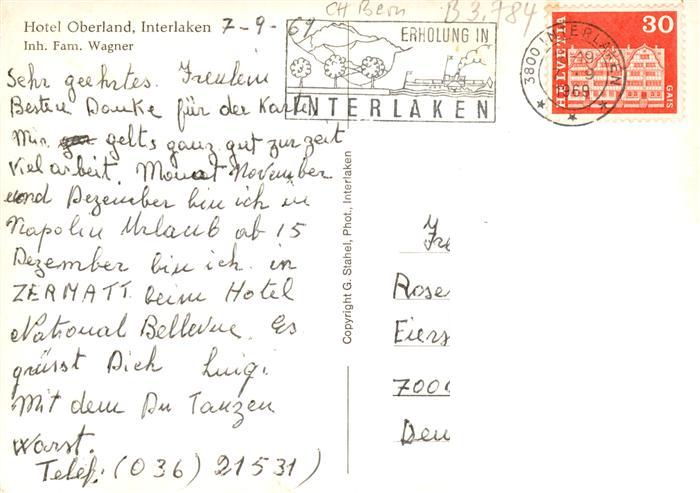 Hotel Oberland, Interlaken 7-9-69
Inh. Fam. Wagner
CH Bern B3.784
ERHOLUNG IN
INTERLAKEN
3800 INTERLAKEN
19
9
1969
HELVETIA
30
GAIS
Sehr geehrtes. Freulein
Besten Danke für der Karte
Mir gehts ganz gut zur zeit
viel arbeit. Monat November
und Dezember bin ich in
Napolin Urlaub ab 15
Dezember bin ich. in
ZERMATT. beim Hotel
National Bellevue. Es
grüsst Dich Luigi
Mit dem Du Tanzen
warst.
Telef: (036) 21531)
Copyright G. Stahel, Phot., Interlaken
Fre
Rose
Eiers
700
Deu